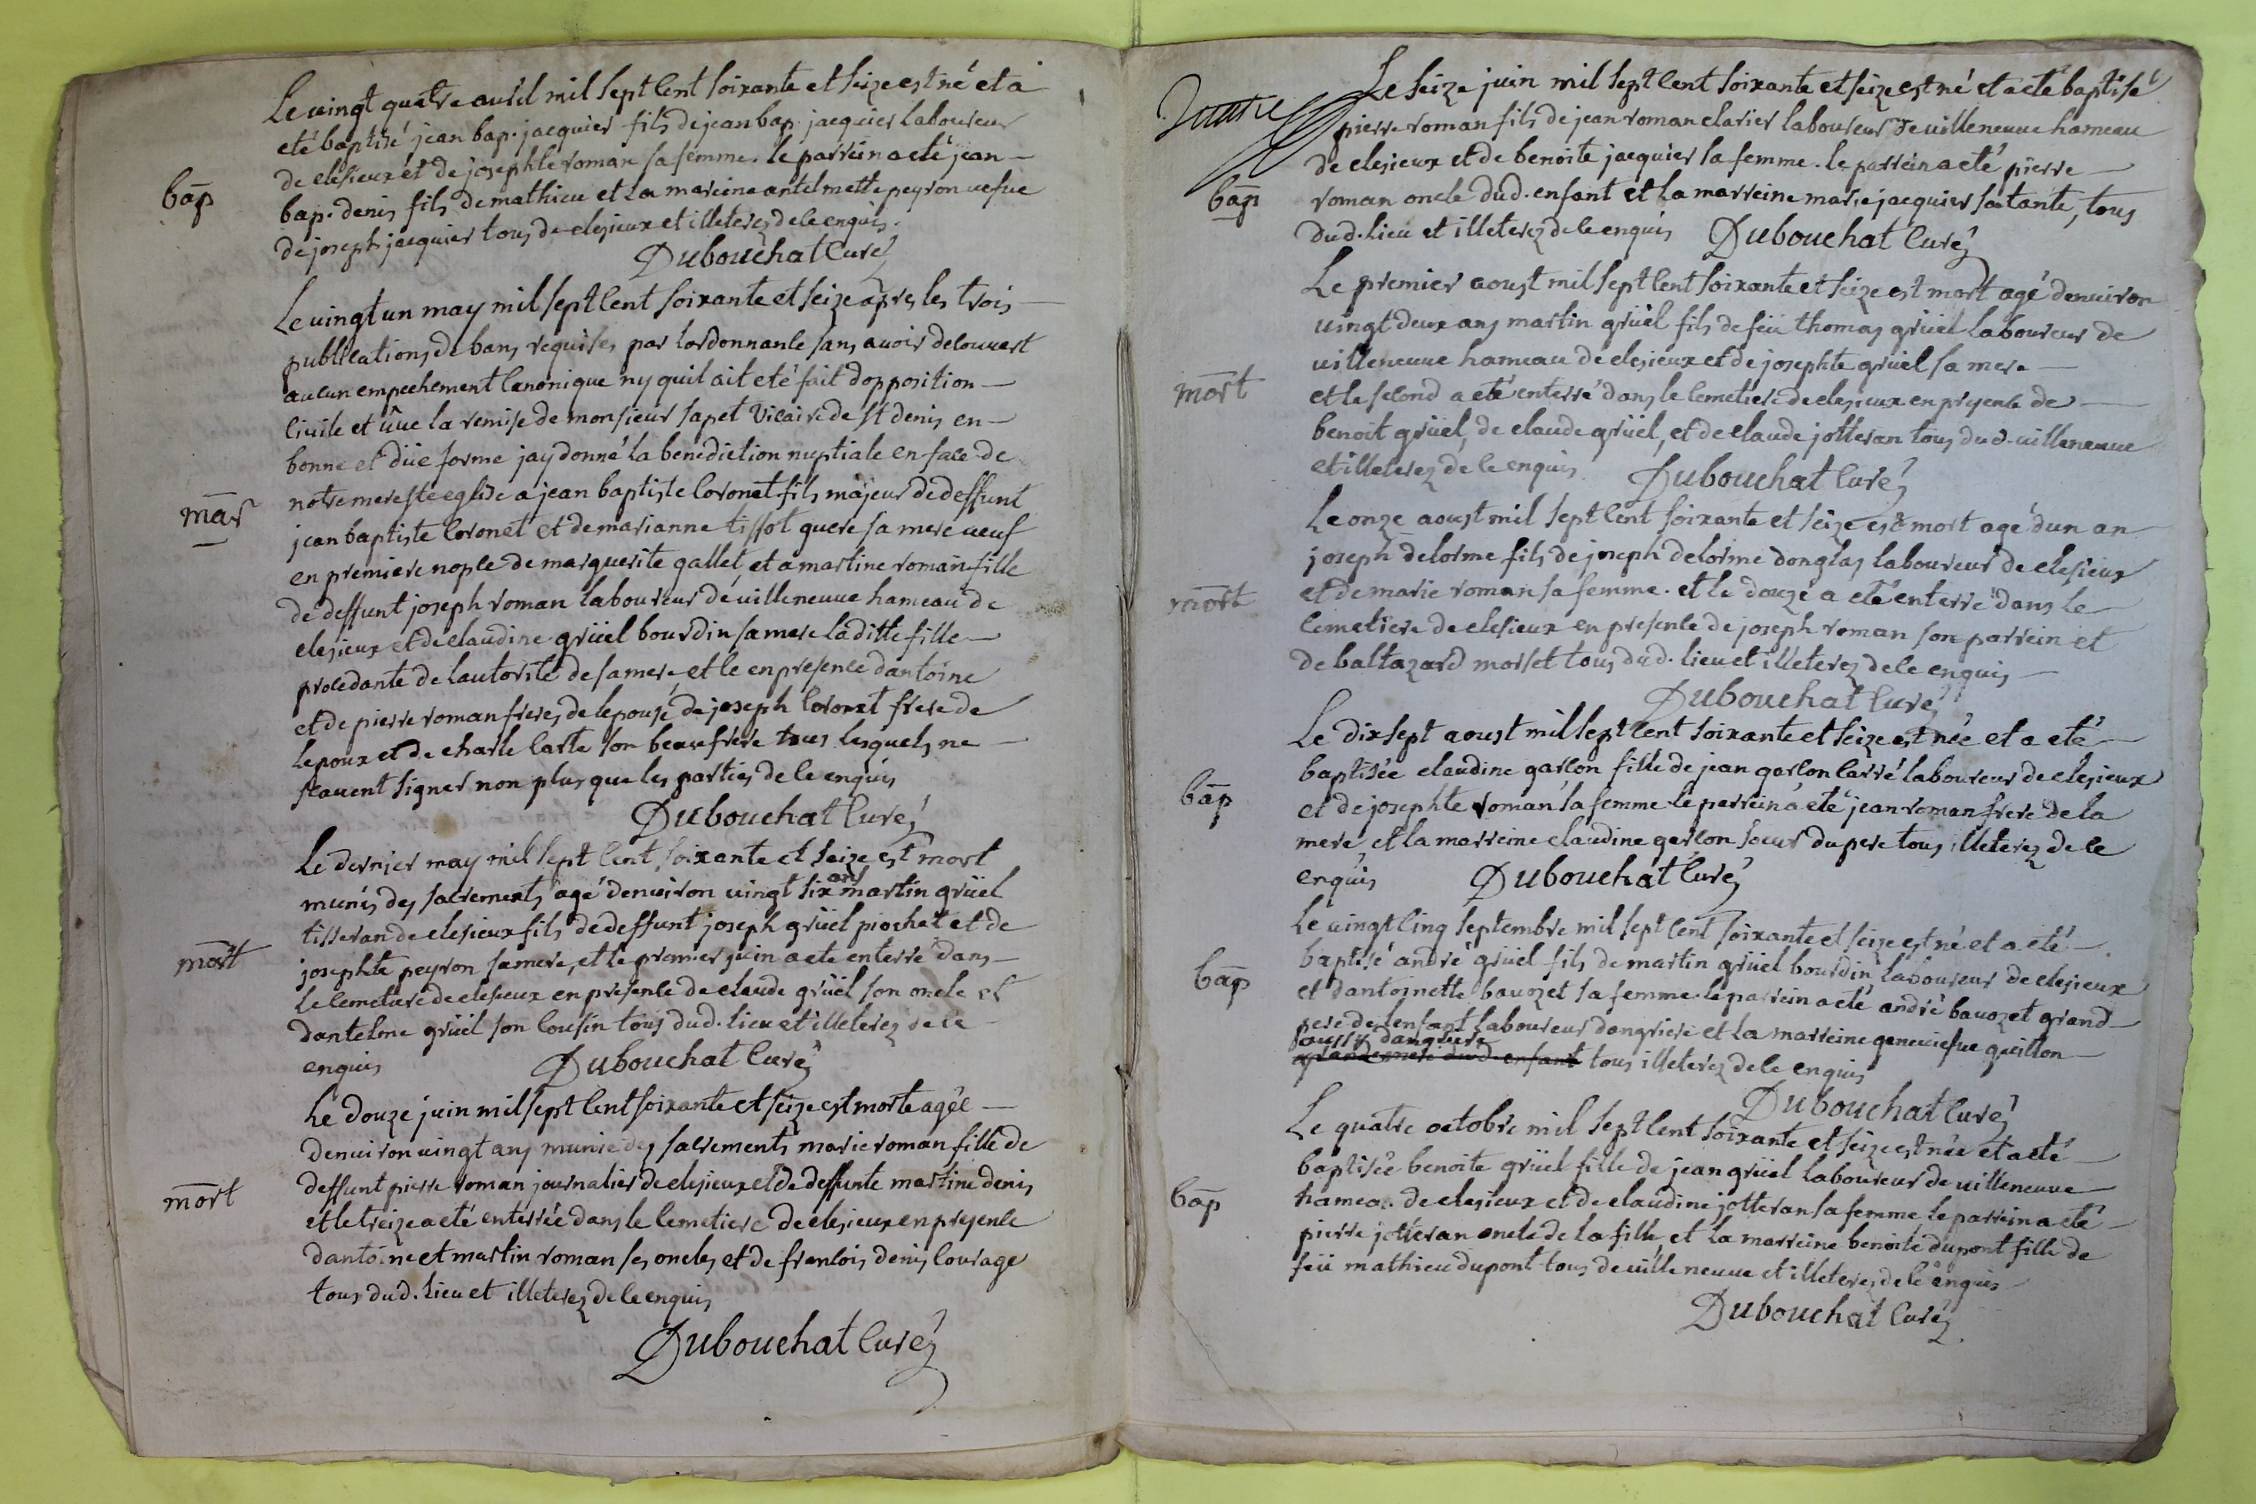 Le vingt quatre avril mil sept cent soixante et seize est né et a
bap
eté baptisé jean bap. jacquier fils de jean bap. jacquier laboureur
de clesieux et de josephte roman sa femme. le parrein a eté jean
bap. denis fils de mathieu et la mareine antelmette peyron vefve
de joseph jacquier tous de clesieux et illeterez de ce enquis.
Dubouchat Curé
Le vingt un may mil sept cent soixante et seize apres les trois
publications de bans requises par lordonnance sans avoir decouvert
aucun empechement canonique ny quil ait eté fait dopposition
civile et vüe la remise de monsieur sapet vicaire de st denis en
bonne et düe forme jay donné la benediction nuptiale en face de
mar
notre mere ste eglise a jean baptiste Coronet fils majeur de deffunt
jean baptiste Coronet et de marianne tissot quere sa mere veuf
en premiere nopce de marguerite gallet et a martine roman fille
de deffunt joseph roman laboureur de villeneuve hameau de
clesieux et de claudine grüel bourdin sa mere laditte fille
procedante de lautorité de sa mere, et ce en presence dantoine
et de pierre roman freres de lepouse, de joseph Coronet frere de
lepoux et de charle Carte son beaufrere tous lesquels ne
scavent signer non plus que les parties de ce enquis
Dubouchat Curé
Le dernier may mil sept cent soixante et seize est mort
munis des sacrements agé denviron vingt six ans martin grüel
tisseran de clesieux fils de deffunt joseph grüel piochat et de
mort
josephte peyron sa mere, et le premier juin a eté enterré dans
le cemetiere de clesieux en presence de claude grüel son oncle et
dantelme grüel son cousin tous dud. lieu et illeterez de ce
enquis Dubouchat Curé
Le douze juin mil sept cent soixante et seize est morte agée
denviron vingt ans munie des sacrements marie roman fille de
mort
deffunt pierre roman journalier de clesieux et de deffunte martine denis
et le treize a eté enterrée dans le cemetiere de clesieux en presence
dantoine et martin roman ses oncles et de francois denis Courage
tous dud. lieu et illeterez de ce enquis
Dubouchat Curé
Le seize juin mil sept cent soixante et seize est né et a eté baptisé
pierre roman fils de jean roman clarier laboureur de villeneuve hameau
de clesieux et de benoite jacquier sa femme. le parrein a eté pierre
bap
roman oncle dud. enfant et la marreine marie jacquier sa tante, tous
dud. lieu et illeterez de ce enquis Dubouchat Curé
Le premier aoust mil sept cent soixante et seize est mort agé denviron
vingt deux ans martin grüel fils de feü thomas grüel laboureur de
villeneuve hameau de clesieux et de josephte grüel sa mere
mort
et le second a eté enterré dans le cemetiere de clesieux en presence de
benoit grüel, de claude grüel, et de claude jotteran tous dud. villeneuve
et illeterez de ce enquis Dubouchat Curé
Le onze aoust mil sept cent soixante et seize est mort agé dun an
joseph delorme fils de joseph delorme donglas laboureur de clesieux
mort
et de marie roman sa femme. et le douze a eté enterré dans le
cemetiere de clesieux en presence de joseph roman son parrein et
de baltazard morset tous dud. lieu et illeterez de ce enquis
Dubouchat Curé
Le dix sept aoust mil sept cent soixante et seize est née et a eté
bap
baptisée claudine garcon fille de jean garcon Carré laboureur de clesieux
et de josephte roman sa femme le parrein a eté jean roman frere de la
mere et la marreine claudine garcon soeur du pere tous illeterez de ce
enquis Dubouchat Curé
Le vingt cinq septembre mil sept cent soixante et seize est né et a eté
bap
baptisé andré grüel fils de martin grüel bourdin laboureur de clesieux
et dantoinette bavozet sa femme. le parrein a eté andré bavozet grand
pere de lenfant laboureur dangriere et la marreine geneviefve guillon
aussy dangriere
grandemere dud. enfant tous illeterez de ce enquis
Dubouchat Curé
Le quatre octobre mil sept cent soixante et seize est née et a eté
baptisée benoite grüel fille de jean grüel laboureur de villeneuve
bap
hameau de clesieux et de claudine jotteran sa femme, le parrein a eté
pierre jotteran oncle de la fille et la marreine benoite dupont fille de
feü mathieu dupont tous de villeneuve et illeterez de ce enquis
Dubouchat Curé